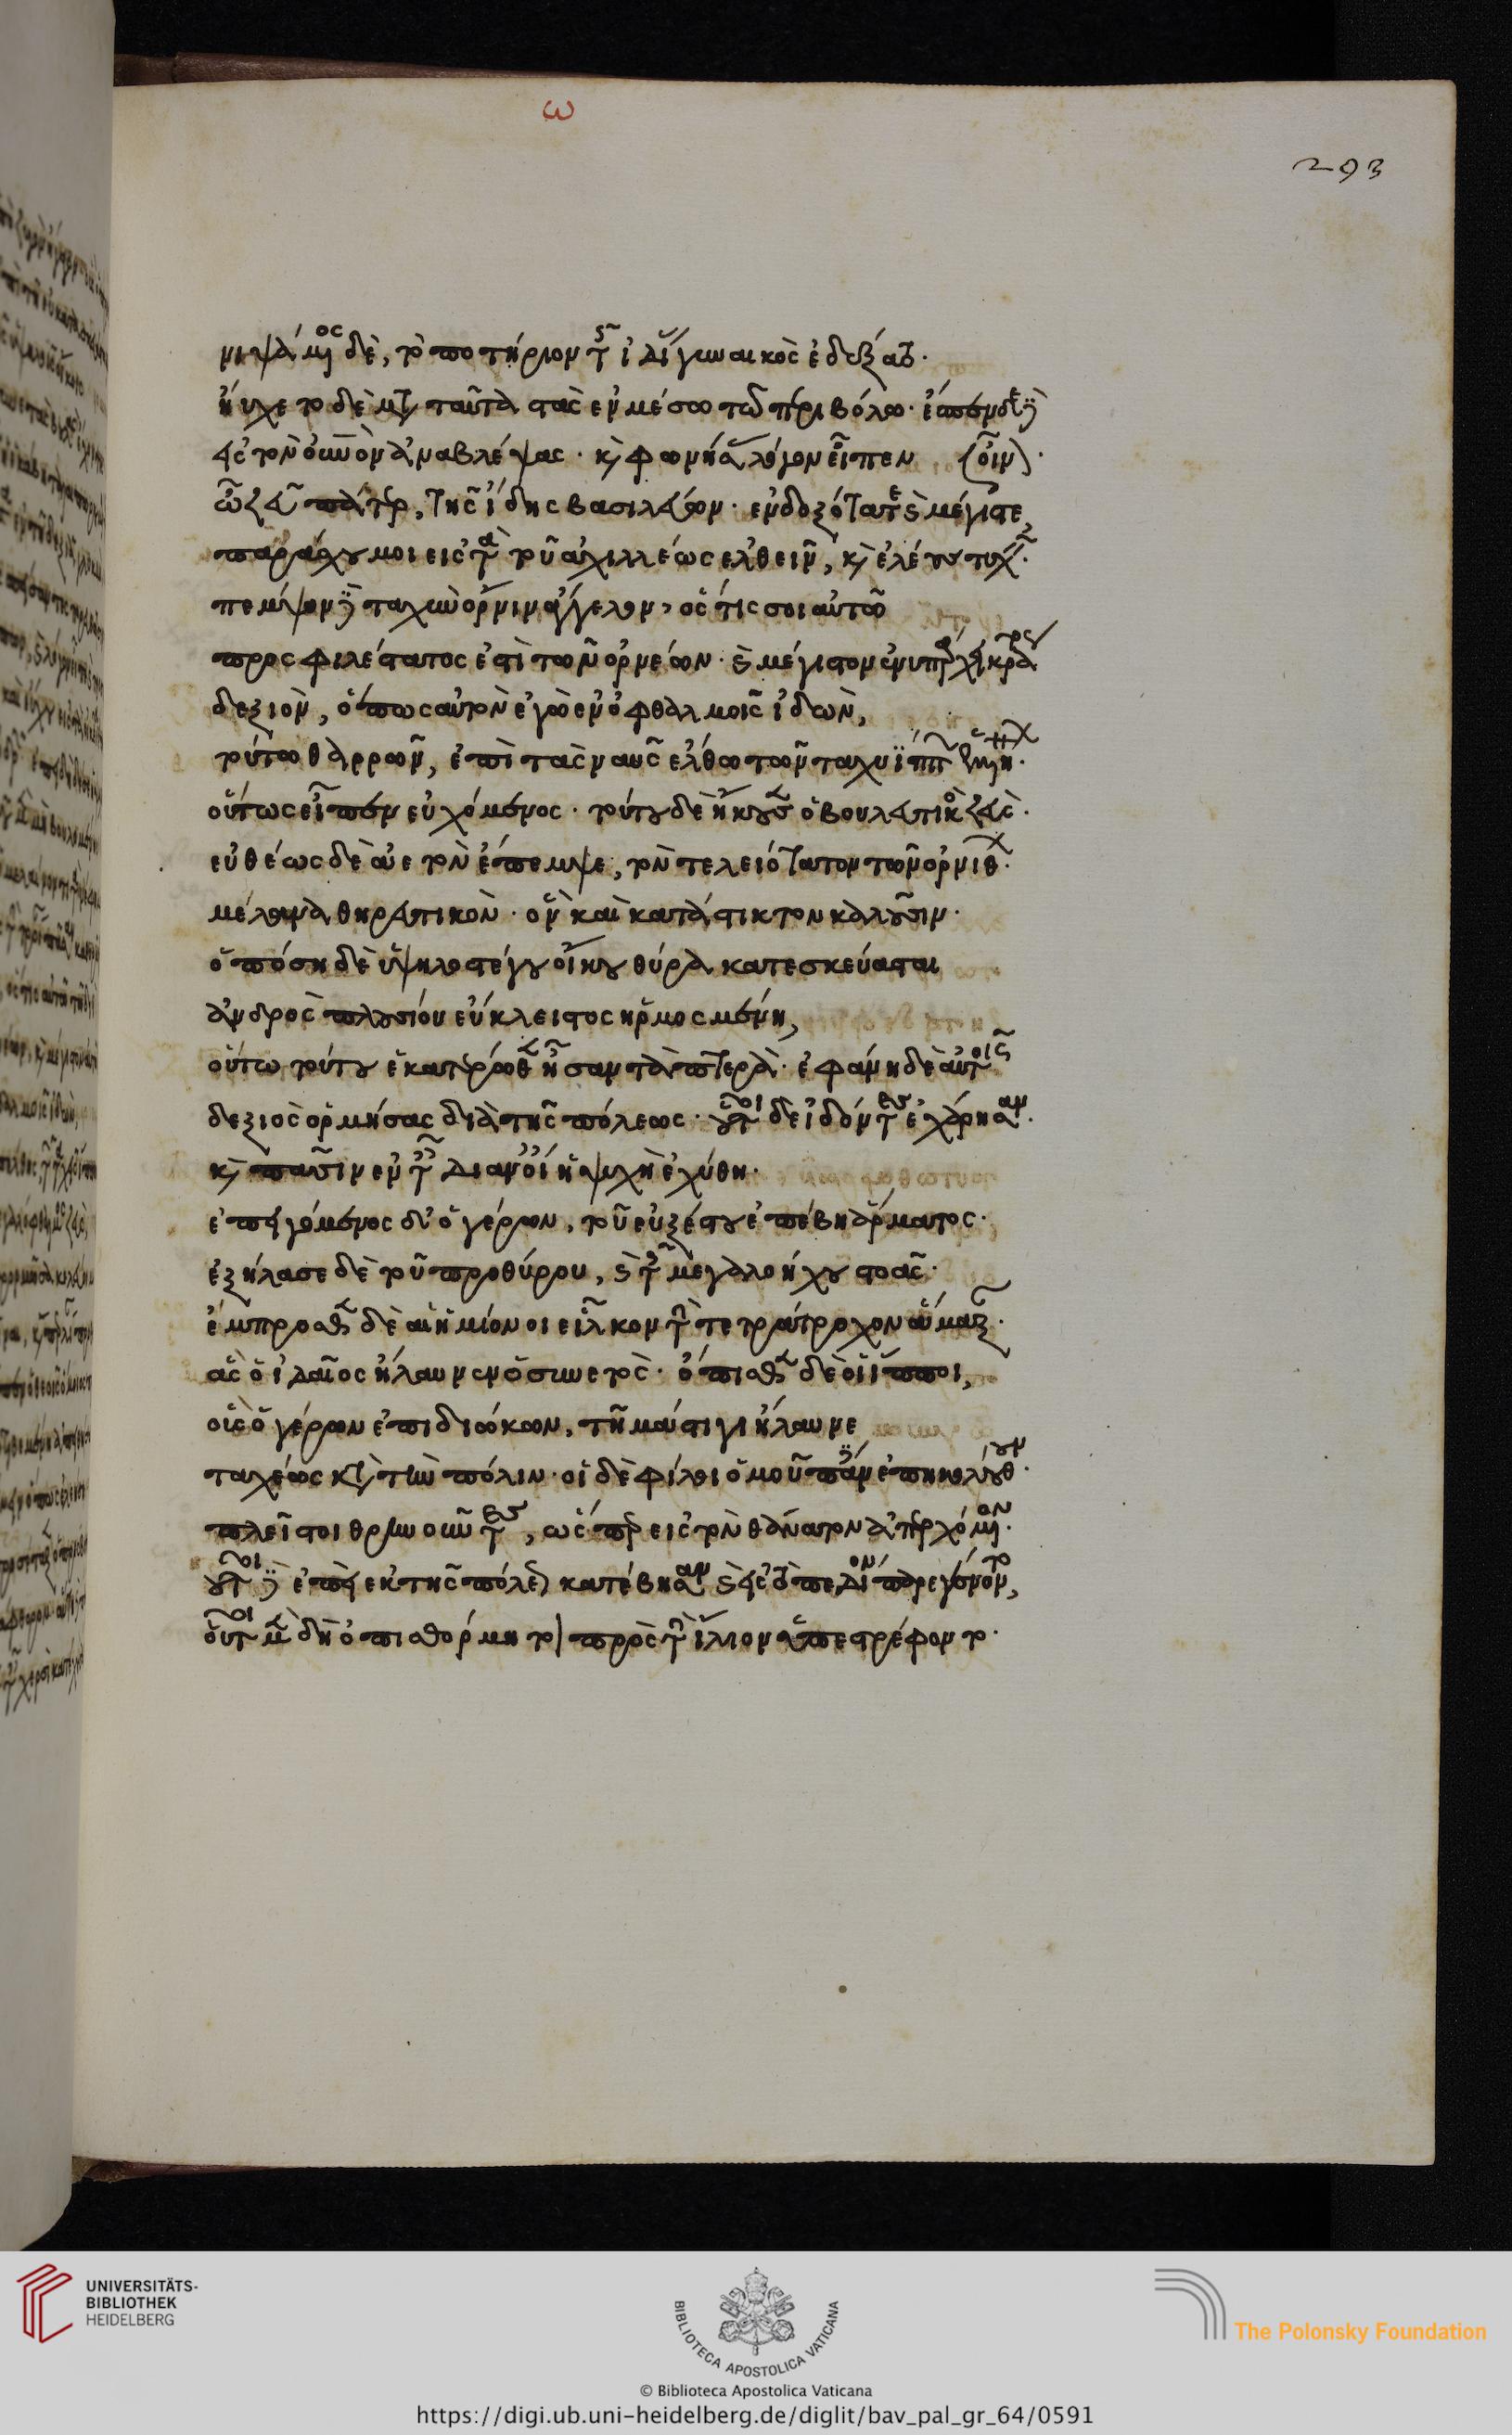 ω
293
νιψάμενος δὲ, τὸ ποτήριον τῆς ἰδίας γυναικὸς ἐδέξατο.
ηὔχετο δὲ μετὰ ταῦτα στὰς ἐν μέσω τῶ περιβόλω· ἔσπενδε δὲ
εἰς τὸν οὐνὸν ἀναβλέψας· καὶ φωνήσας λόγον εἶπεν (οἶνον)·
ὦ ζεῦ πάτερ, τῆς ἴδης βασιλεύων· ἐνδοξότατε καὶ μέγιστε,
παράσχου μοι εἰς τὰ τοῦ ἀχιλλέως ἐλθεῖν, καὶ ἐλέου τυχεῖν.
πέμψον δὲ ταχὺν ὄρνιν ἄγγελον, ὅς τις σοι αὐτῶ
προσφιλέστατος ἐστὶ τῶν ὀρνέων· καὶ μέγιστον ἐνυπάρχει κράτος
δεξιὸν, ὅπως αὐτὸν ἐγὼ ἐν ὀφθαλμοῖς ἰδὼν,
τούτω θαρρῶν, ἐπὶ τὰς ναῦς ἔλθω τῶν ταχυΐππων ἑλλήνων.
οὕτως εἶπεν εὐχόμενος· τούτου δὲ ἤκουσεν ὁ βουλευτικὸς ζεὺς.
εὐθέως δὲ ἀετὸν ἔπεμψε, τὸν τελειότατον τῶν ὀρνίθων.
μέλανα θηρευτικὸν· ὃν καὶ κατάστικτον καλοῦσιν.
ὁπόση δὲ ὑψηλοστέγου οἴκου θύρα κατεσκεύασται
ἀνδρὸς πλουσίου εὔκλειστος ἡρμοσμένη,
οὕτω τούτου ἑκατέρωθεν ἦσαν τὰ πτερὰ· ἐφάνη δὲ αὐτοῖς
δεξιὸς ὁρμήσας διὰ τῆς πόλεως· οὗτοι δὲ ἰδόντες ἐχάρησαν.
καὶ πᾶσιν ἐν ταῖς διανοίαις ἡ ψυχὴ ἐχύθη.
ἐπειγόμενος δ' ὁ γέρων, τοῦ εὐξέστου ἐπέβη ἅρματος.
ἐξήλασε δὲ τοῦ προθύρου, καὶ τῆς μεγαλοήχου στοᾶς.
ἔμπροσθεν δὲ αἱ ἡμίονοι εἷλκον τὴν τετράτροχον ἅμαξαν.
ἃς ὁ ἰδαῖος ἤλαυνεν ὁ συνετὸς· ὄπισθεν δὲ οἱ ἵπποι,
οἷς ὁ γέρων ἐπιδιώκων, τῆ μάστιγι ἤλαυνε
ταχέως κατὰ τὴν πόλιν· οἱ δὲ φίλοι ὁμοῦ πάντες ἐπηκολούθουν.
πλεῖστοι θρηνοῦντες, ὥσπερ εἰς τὸν θάνατον ἀπερχόμενον.
οὗτοι δὲ ἐπεὶ ἐκ τῆς πόλεως κατέβησαν καὶ εἰς τὸ πεδίον παρεγένοντο,
οὗτοι μὲν δὴ ὀπισθόρμητοι πρὸς τὴν ἴλιον ὑπεστρέφοντο.
UNIVERSITÄTS-
BIBLIOTHEK
HEIDELBERG
BIBLIOTECA APOSTOLICA VATICANA
The Polonsky Foundation
© Biblioteca Apostolica Vaticana
https://digi.ub.uni-heidelberg.de/diglit/bav_pal_gr_64/0591